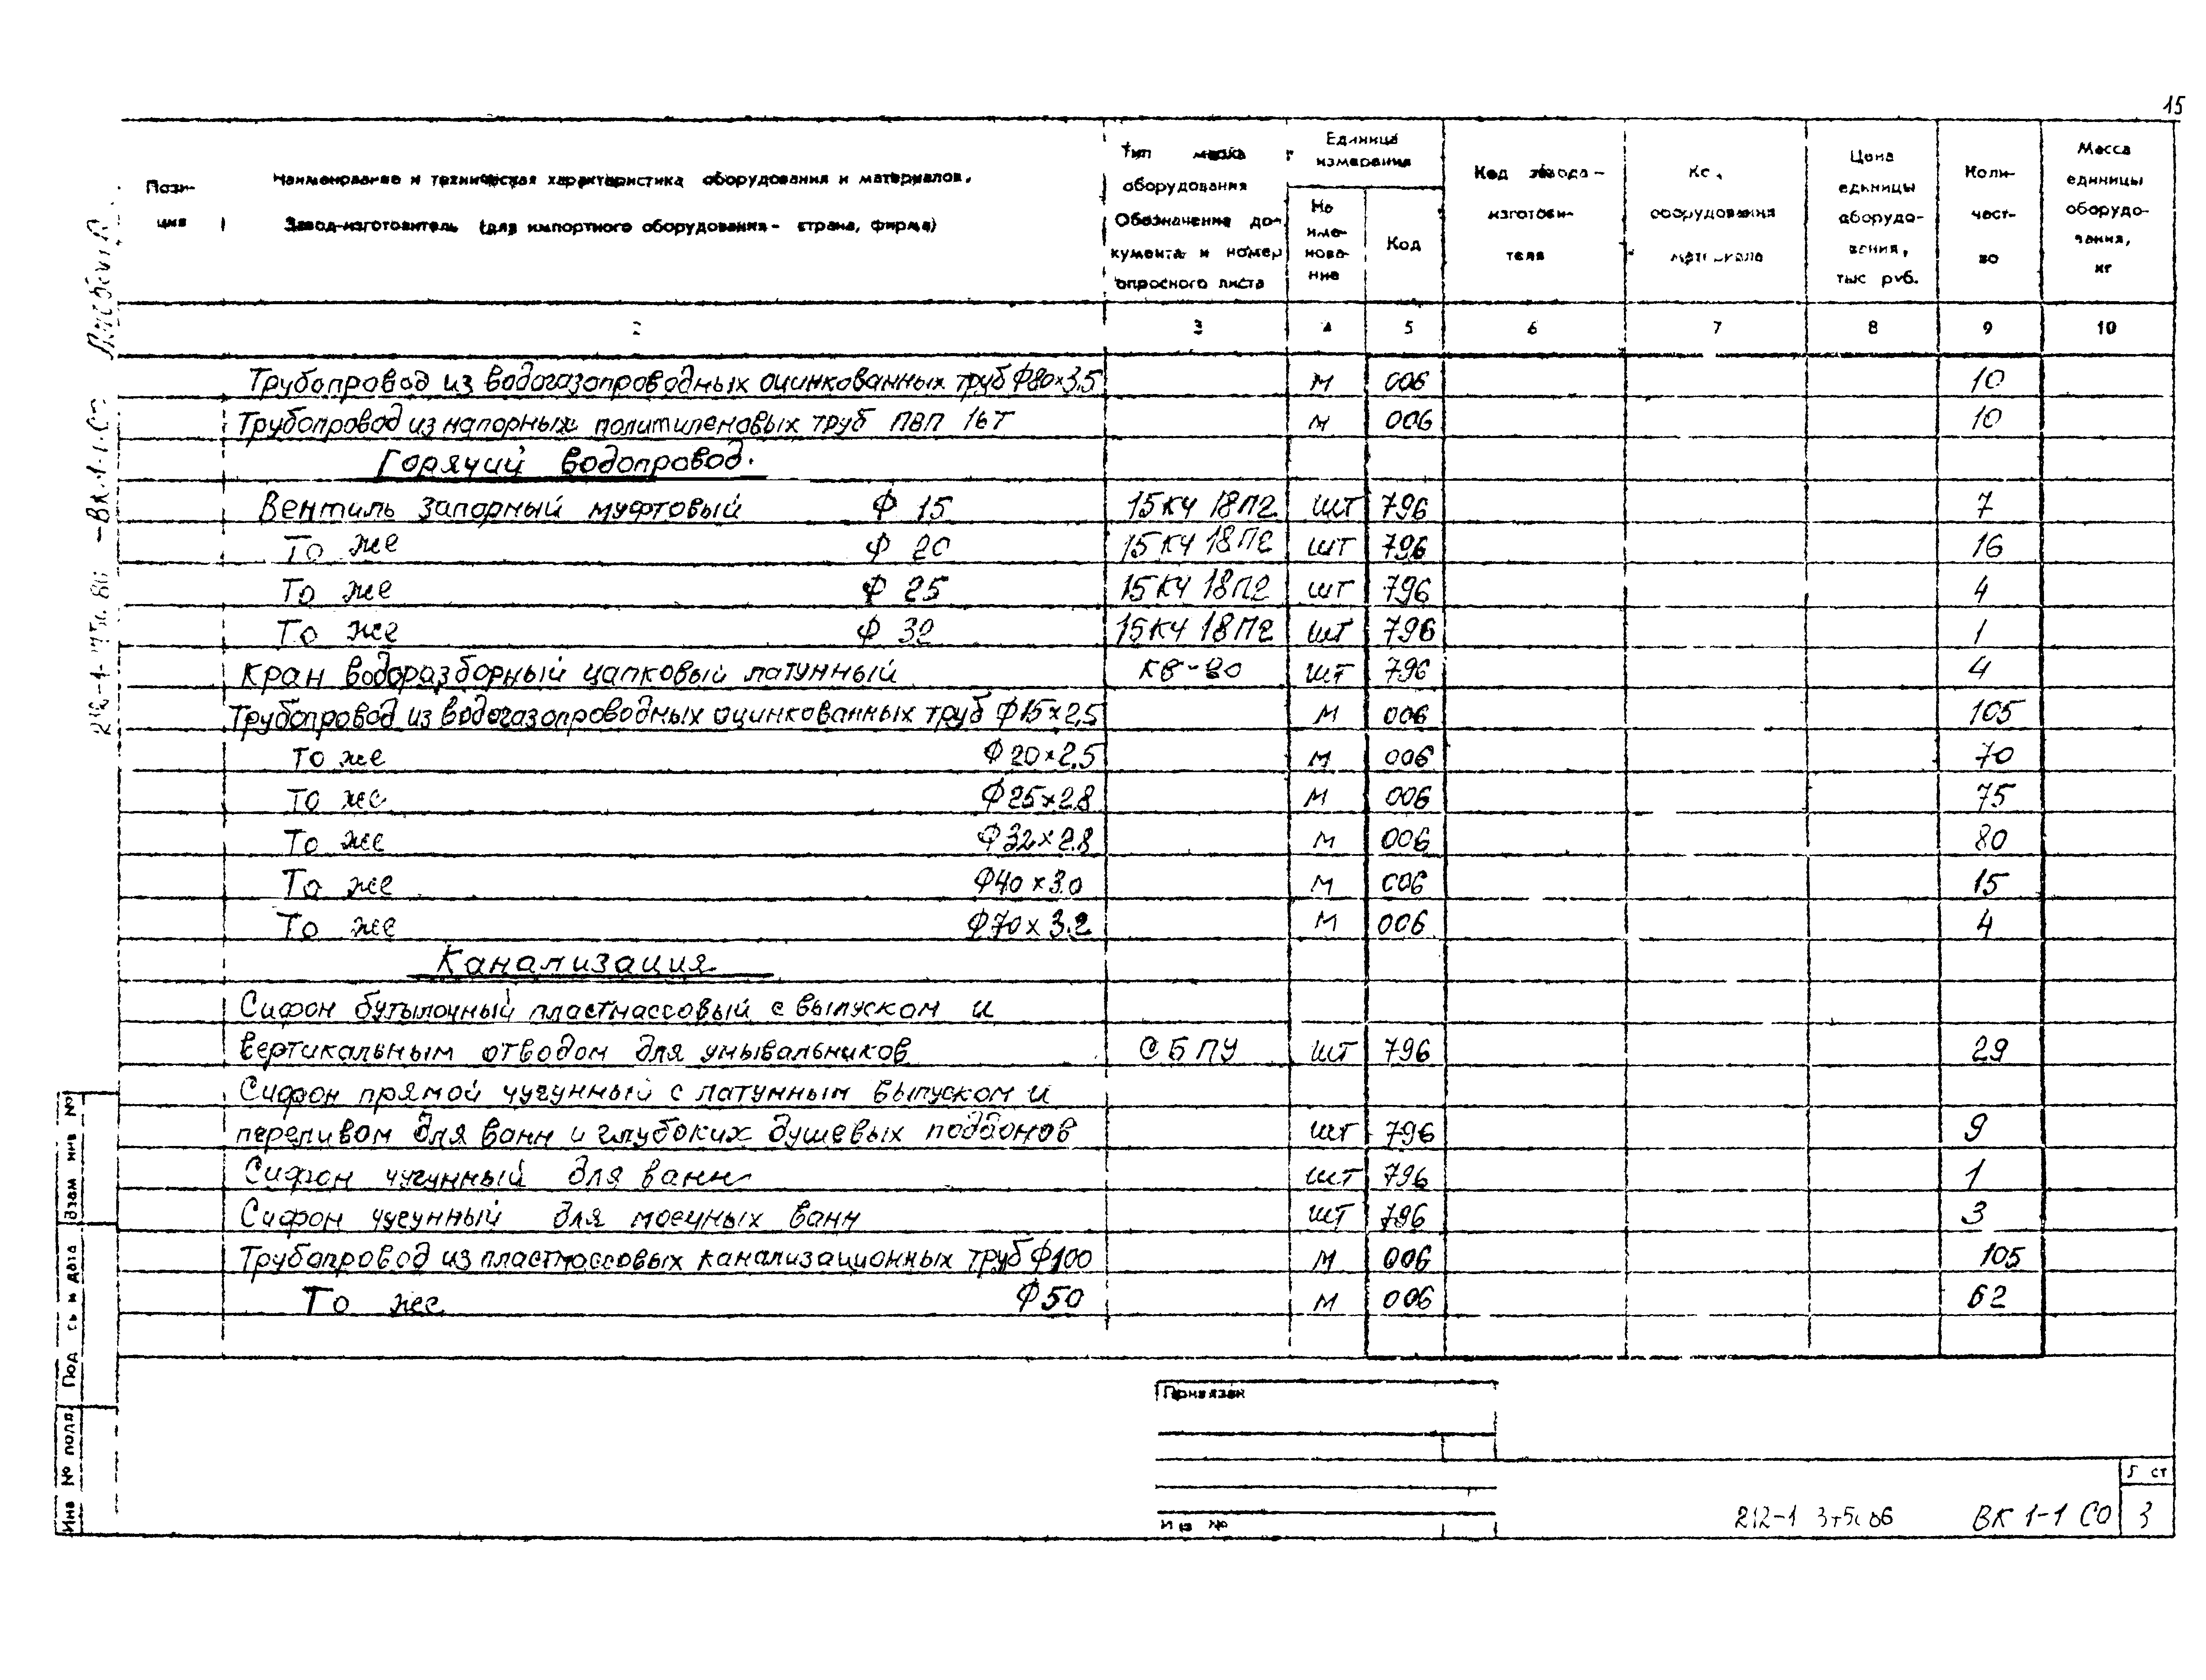 15
Пози-
ция
Наименование и техническая характеристика оборудования и материалов.
Завод-изготовитель (для импортного оборудования - страна, фирма)
Тип марка
оборудования
Обозначение до-
кумента и номер
опросного листа
Единица
измерения
На
име-
нова-
ние
Код
Код завода-
изготови-
теля
оборудования
материала
Цена
единицы
оборудо-
вания,
тыс руб.
Коли-
чест-
во
Масса
единицы
оборудо-
вания,
кг
2 3 4 5 6 7 8 9 10
Трубопровод из водогазопроводных оцинкованных труб Ф80×3,5 м 006 10
Трубопровод из напорных политиленовых труб ПВП 16Т м 006 10
Горячий водопровод.
Вентиль запорный муфтовый Ф 15 15КЧ 18П2 шт 796 7
То же Ф 20 15КЧ 18П2 шт 796 16
То же Ф 25 15КЧ 18П2 шт 796 4
То же Ф 32 15КЧ 18П2 шт 796 1
Кран водоразборный цапковый латунный КВ-20 шт 796 4
Трубопровод из водогазопроводных оцинкованных труб Ф15×2,5 м 006 105
То же Ф20×2,5 м 006 70
То же Ф25×2,8 м 006 75
То же Ф32×2,8 м 006 80
То же Ф40×3,0 м 006 15
То же Ф70×3,2 м 006 4
Канализация
Сифон бутылочный пластмассовый с выпуском и
вертикальным отводом для умывальников СБПУ шт 796 29
Сифон прямой чугунный с латунным выпуском и
переливом для ванн и глубоких душевых поддонов шт 796 9
Сифон чугунный для ванн шт 796 1
Сифон чугунный для моечных ванн шт 796 3
Трубопровод из пластмассовых канализационных труб Ф100 м 006 105
То же Ф50 м 006 62
Взам инв №
Под сь и дата
Инв № подл
Привязан
Инв №
212-1
ВК 1-1 СО
3